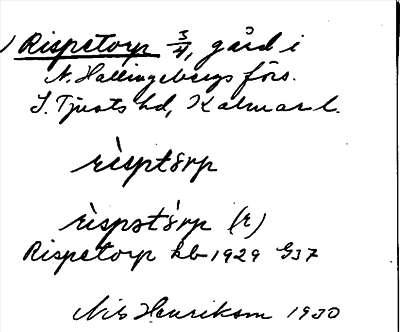 ) Rispetorp 3/4, gård i
N. Hallingebergs förs.
S. Tjusts hd, Kalmar l.
rìsptòrp
rìspətòrp (r)
Rispetorp kb 1929 G37
Nils Henrikson 1930